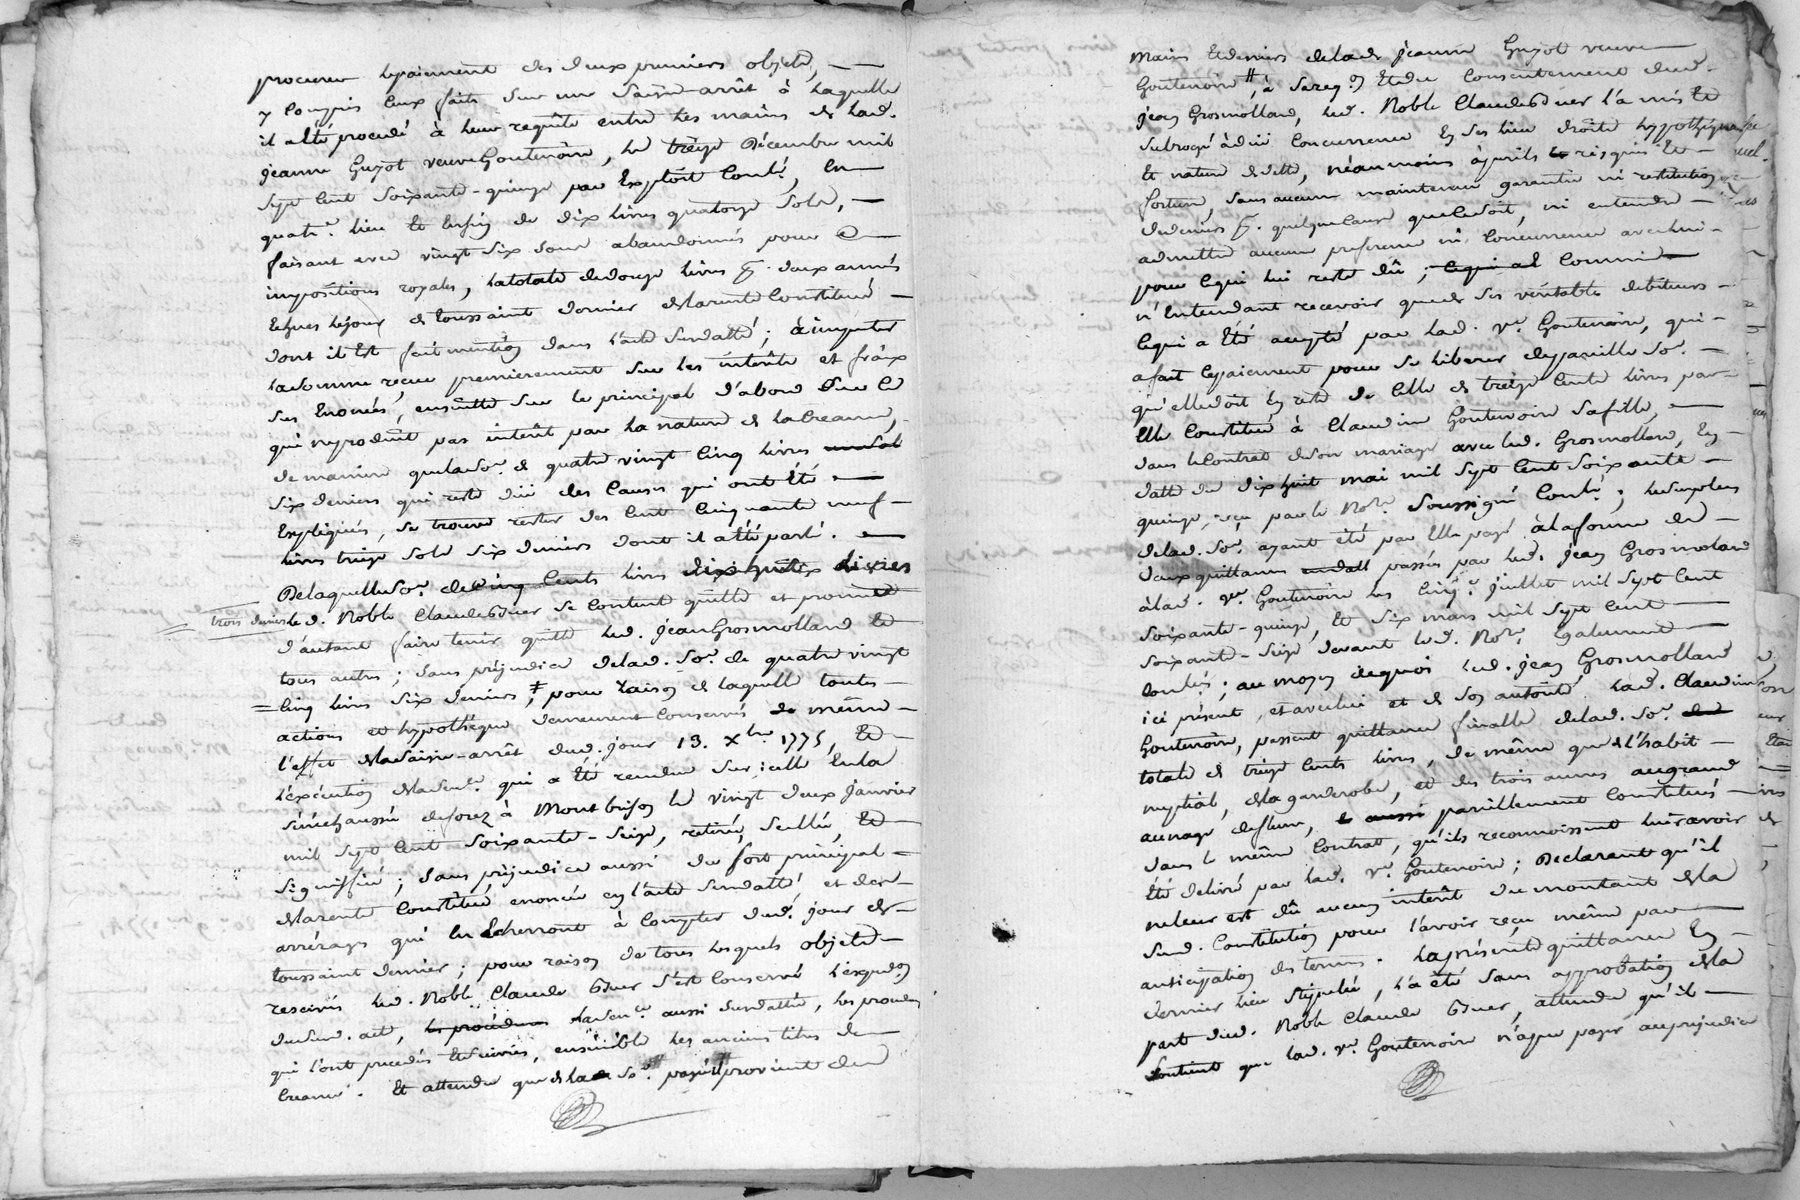 procurer le paiement des deux premiers objets,
y compris ceux faits sur une saisie-arrêt à laquelle
il a été procédé à leur requête entre les mains de lad.
jeanne Guyot veuve Goutenoire, le treize Décembre mil
sept cent soixante-quinze par Exploit Conlé, en
quatr.e lieu et enfin de dix livres quatorze sols,
faisant avec vingt six sous abandonnés pour
impositions royales, la totale de douze livres p.r deux années
échues le jour de toussaint dernier de la rente Constituée
dont il Est fait mention dans l'acte susdatté; à imputer
la somme reçue premierement sur les intérêts et fraix
sus énoncés, ensuitte sur le principal d'abord sur ce
qui ne produit pas intérêt par la nature de la Creance,
de maniere que la so.e de quatre vingt cinq livres un sol
six deniers qui reste düe des Causes qui ont été
Expliquées, se trouve rester des cent cinquante neuf
livres treize sols six deniers dont il a été parlé.
De laquelle so.e de cinq cents livres dix huit livres
trois deniers led. Noble Claude se contente quitte et promet
d'autant faire tenir quitte led. jean Grosmolland et
tous autres; sans préjudice de lad. so.e de quatre vingt
cinq livres six deniers, pour raison de laquelle toutes
actions et hypothèque demeurent conservés de même
l'effet de la saisie-arrêt dud. jour 13. Xbre 1775, et
l'éxécution de la sen.ce qui a été rendue sur icelle En la
sénéchaussée de forez à Montbrison le vingt deux janvier
mil sept cent soixante-seize, retirée, scellée, et
signiffiée; sans préjudice aussi du sort principal
de la rente Constituée énoncée en l'acte susdatté et des
arrérages qui en écherront à compter dud. jour de
toussaint dernier; pour raison de tous lesquels objets
reservés led. Noble Claude s'est Conservé l'exp.on
dudud. act, les procédures la sen.ce aussi susdattée, les procedures
qui l'ont precedés et suivies, ensemble les anciens titres de
Creance. Et attendu que de la so.e payée provient des
mains et deniers de lad. jeanne Guyot veuve
Goutenoire, à sa req.on et du consentement dud.
jean Grosmolland, led. Noble Claude l'a mis et
subrogé à düe concurrence en ses lieu droits hypothèque
et nature de dette, néanmoins à perils risques et
fortune, sans aucune maintenue garantie ni restitution
de deniers p.r quelque cause que ce soit, ni entendre
admettre aucune preference ni concurrence avec lui
pour ce qui lui reste dû; ce qui comme
n'Entendant recevoir que de ses véritables debiteurs
ce qui a été accepté par lad. v.e Goutenoire, qui
a fait ce paiement pour se liberer de pareille so.e
qu'elle doit en reste de celle de treize cents livres par
elle Constituée à Claudine Goutenoire sa fille,
dans le Contrat de son mariage avec led. Grosmolland, en
datte du dix huit mai mil sept cent soixante
quinze, reçu par le No.re soussigné Conlé; le surplus
de lad. so.e ayant été par elle payé à la forme de
deux quittances passées par led. jean Grosmolland
à lad. v.e Goutenoire les cinq juillet mil sept cent
soixante-quinze, et six mars mil sept cent
soixante-seize devant led. No.re également
conlés; au moyen de quoi led. jean Grosmolland
ici présent, et avec lui et de son autorité lad. Claudine
Goutenoire, passent quittance finalle de lad. so.e
totale de treize cents livres, de même que de l'habit
nuptial, de la garderobe, et des trois aunes au grand
aunage de fleur, pareillement constitués
dans le même contrat, qu'ils reconnoissent leur avoir
été délivré par lad. v.e Goutenoire; Declarant qu'il
ne leur est dû aucun intérêt du montant de la
sud. Constitution pour l'avoir reçu même par
anticipation des termes. La présente quittance en
dernier lieu stipulée, l'a été sans approbation de la
part dud. Noble Claude, attendu qu'il
soutient que lad. v.e Goutenoire n'a pu payer au préjudice